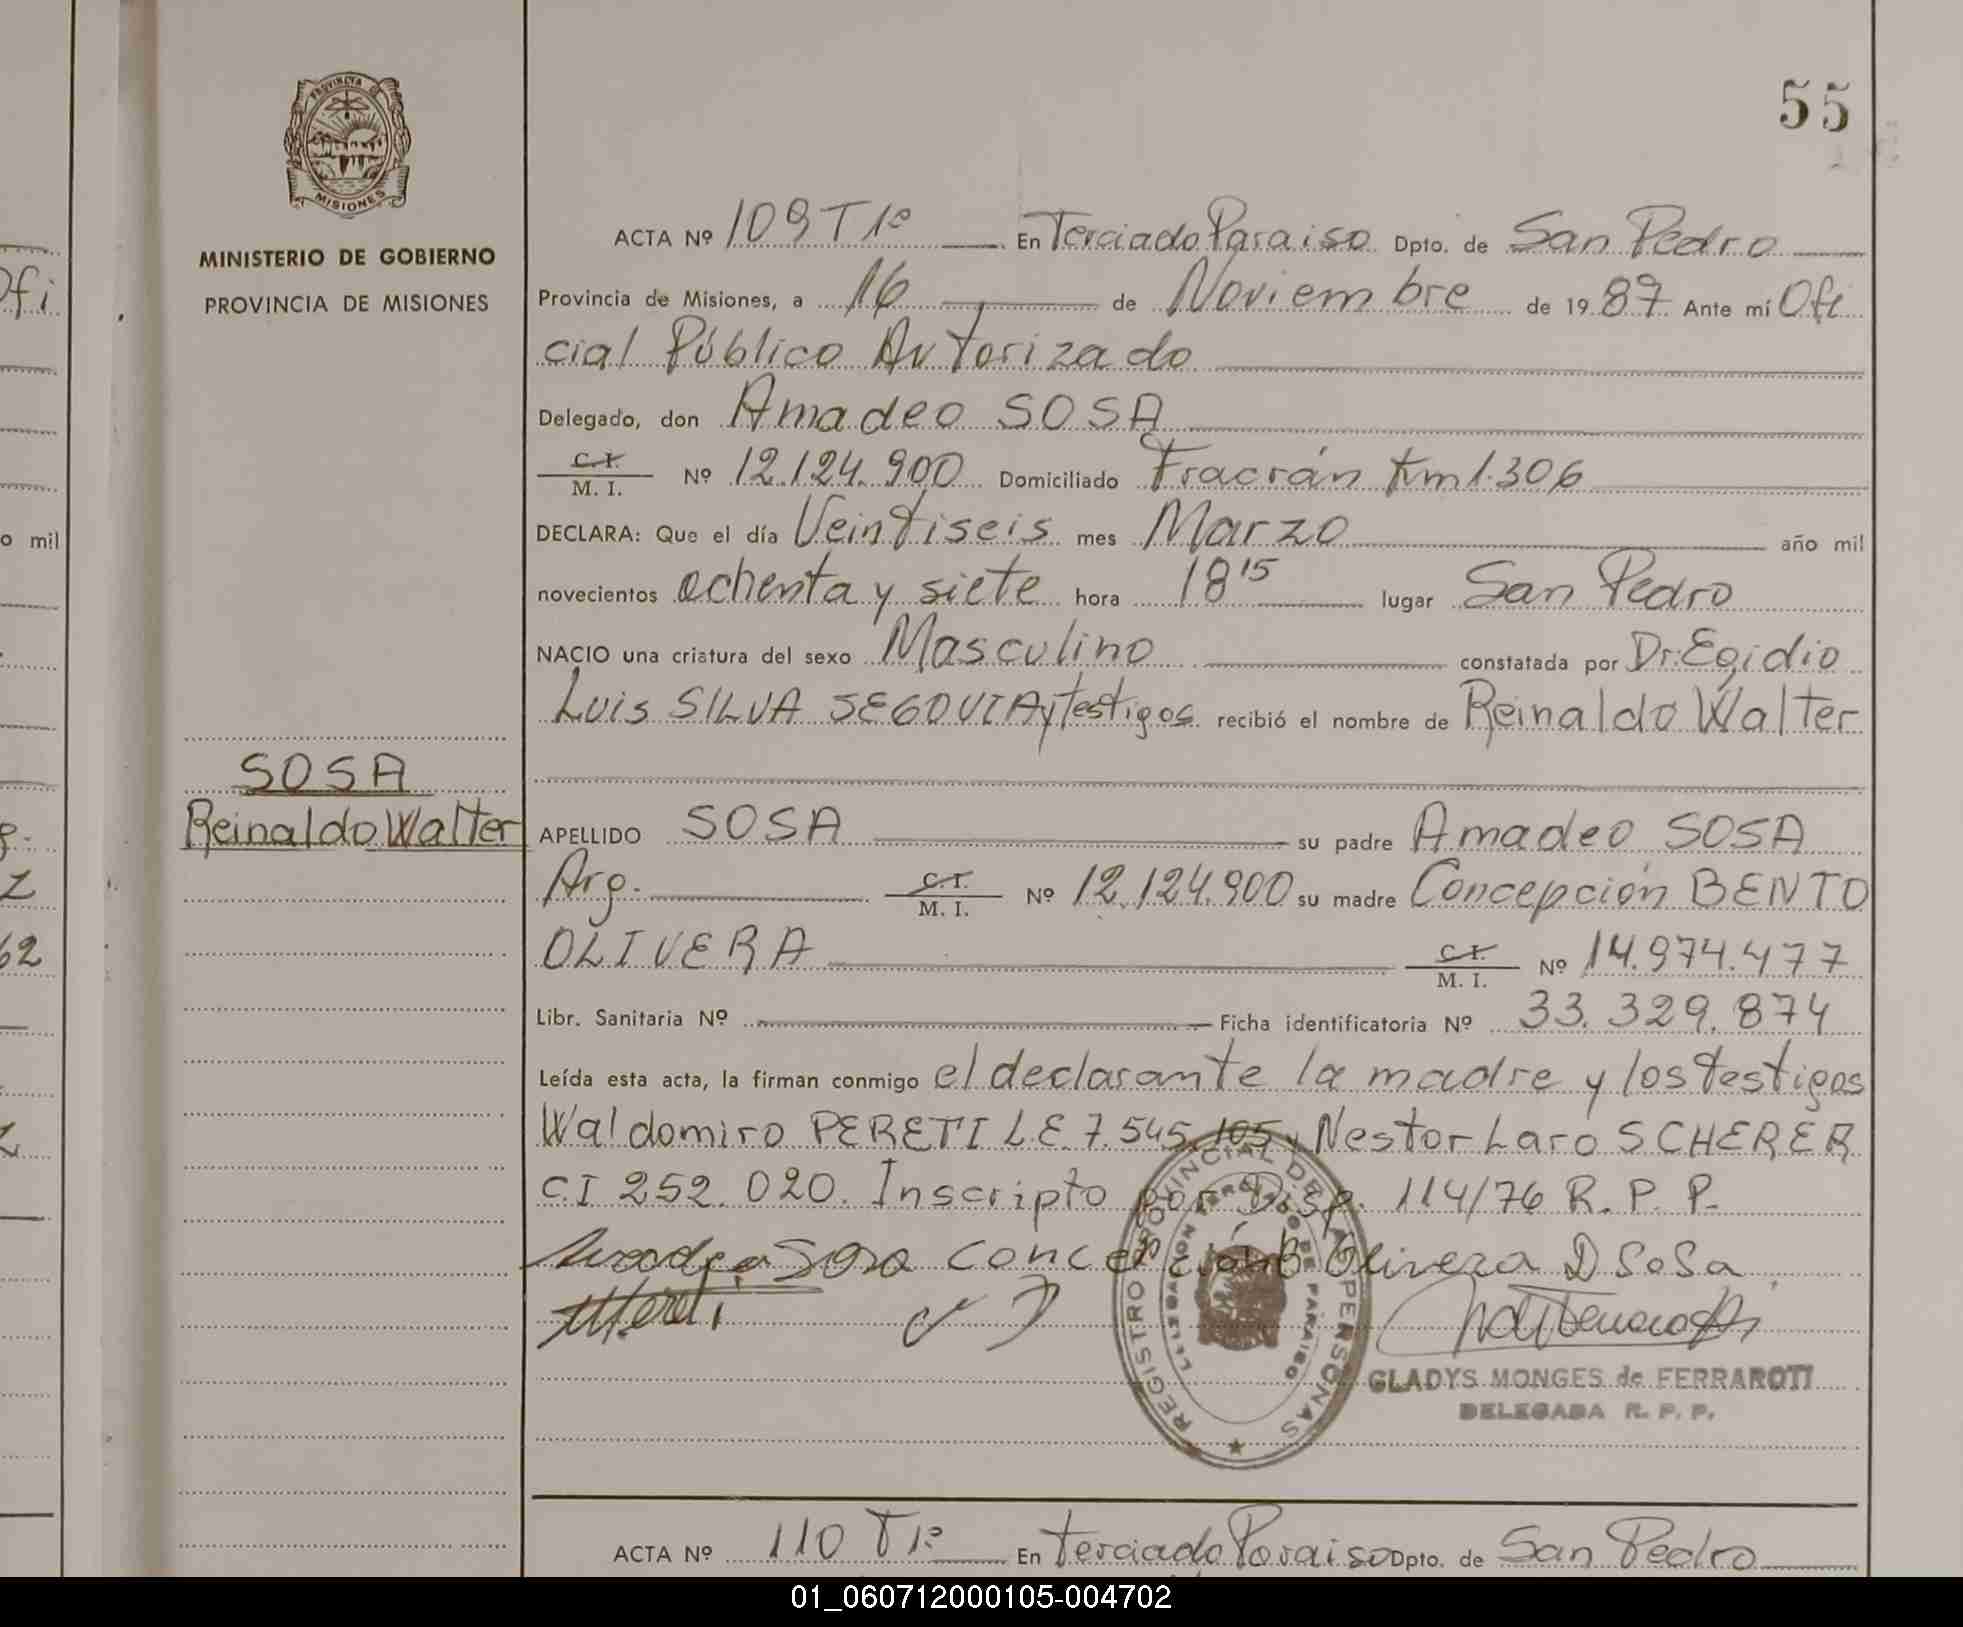 55
PROVINCIA D
MISIONES
MINISTERIO DE GOBIERNO
PROVINCIA DE MISIONES
ACTA Nº 109 T 1º En Terciado Paraiso Dpto. de San Pedro
Provincia de Misiones, a 16 de Noviembre de 19 87 Ante mí Ofi
cial Público Autorizado
Delegado, don Amadeo SOSA
C.I. M. I. Nº 12.124.900 Domiciliado Fracrán Km 1.306
DECLARA: Que el día Veintiseis mes Marzo año mil
novecientos ochenta y siete hora 18 15 lugar San Pedro
NACIO una criatura del sexo Masculino constatada por Dr. Egidio
Luis SILVA SEGOVIA y testigos recibió el nombre de Reinaldo Walter
SOSA
Reinaldo Walter
APELLIDO SOSA su padre Amadeo SOSA
Arg. C.I. M. I. Nº 12.124.900 su madre Concepción BENTO
OLIVERA C.I. M. I. Nº 14.974.477
Libr. Sanitaria Nº Ficha identificatoria Nº 33.329.874
Leída esta acta, la firman conmigo el declarante la madre y los testigos
Waldomiro PERETI L.E. 7.545.105 y Nestor Laro SCHERER
C.I 252.020. Inscripto por Disp. 114/76 R. P. P.
Amadeo Sosa Concepción B Olivera D SoSa
REGISTRO PROVINCIAL DE LA PERSONAS
DELEGACION TERCIADO DE PARAISO
GLADYS MONGES de FERRAROTI
DELEGADA R. P. P.
ACTA Nº 110 T 1º En Terciado Paraiso Dpto. de San Pedro
Ofi
o mil
62
01_060712000105-004702